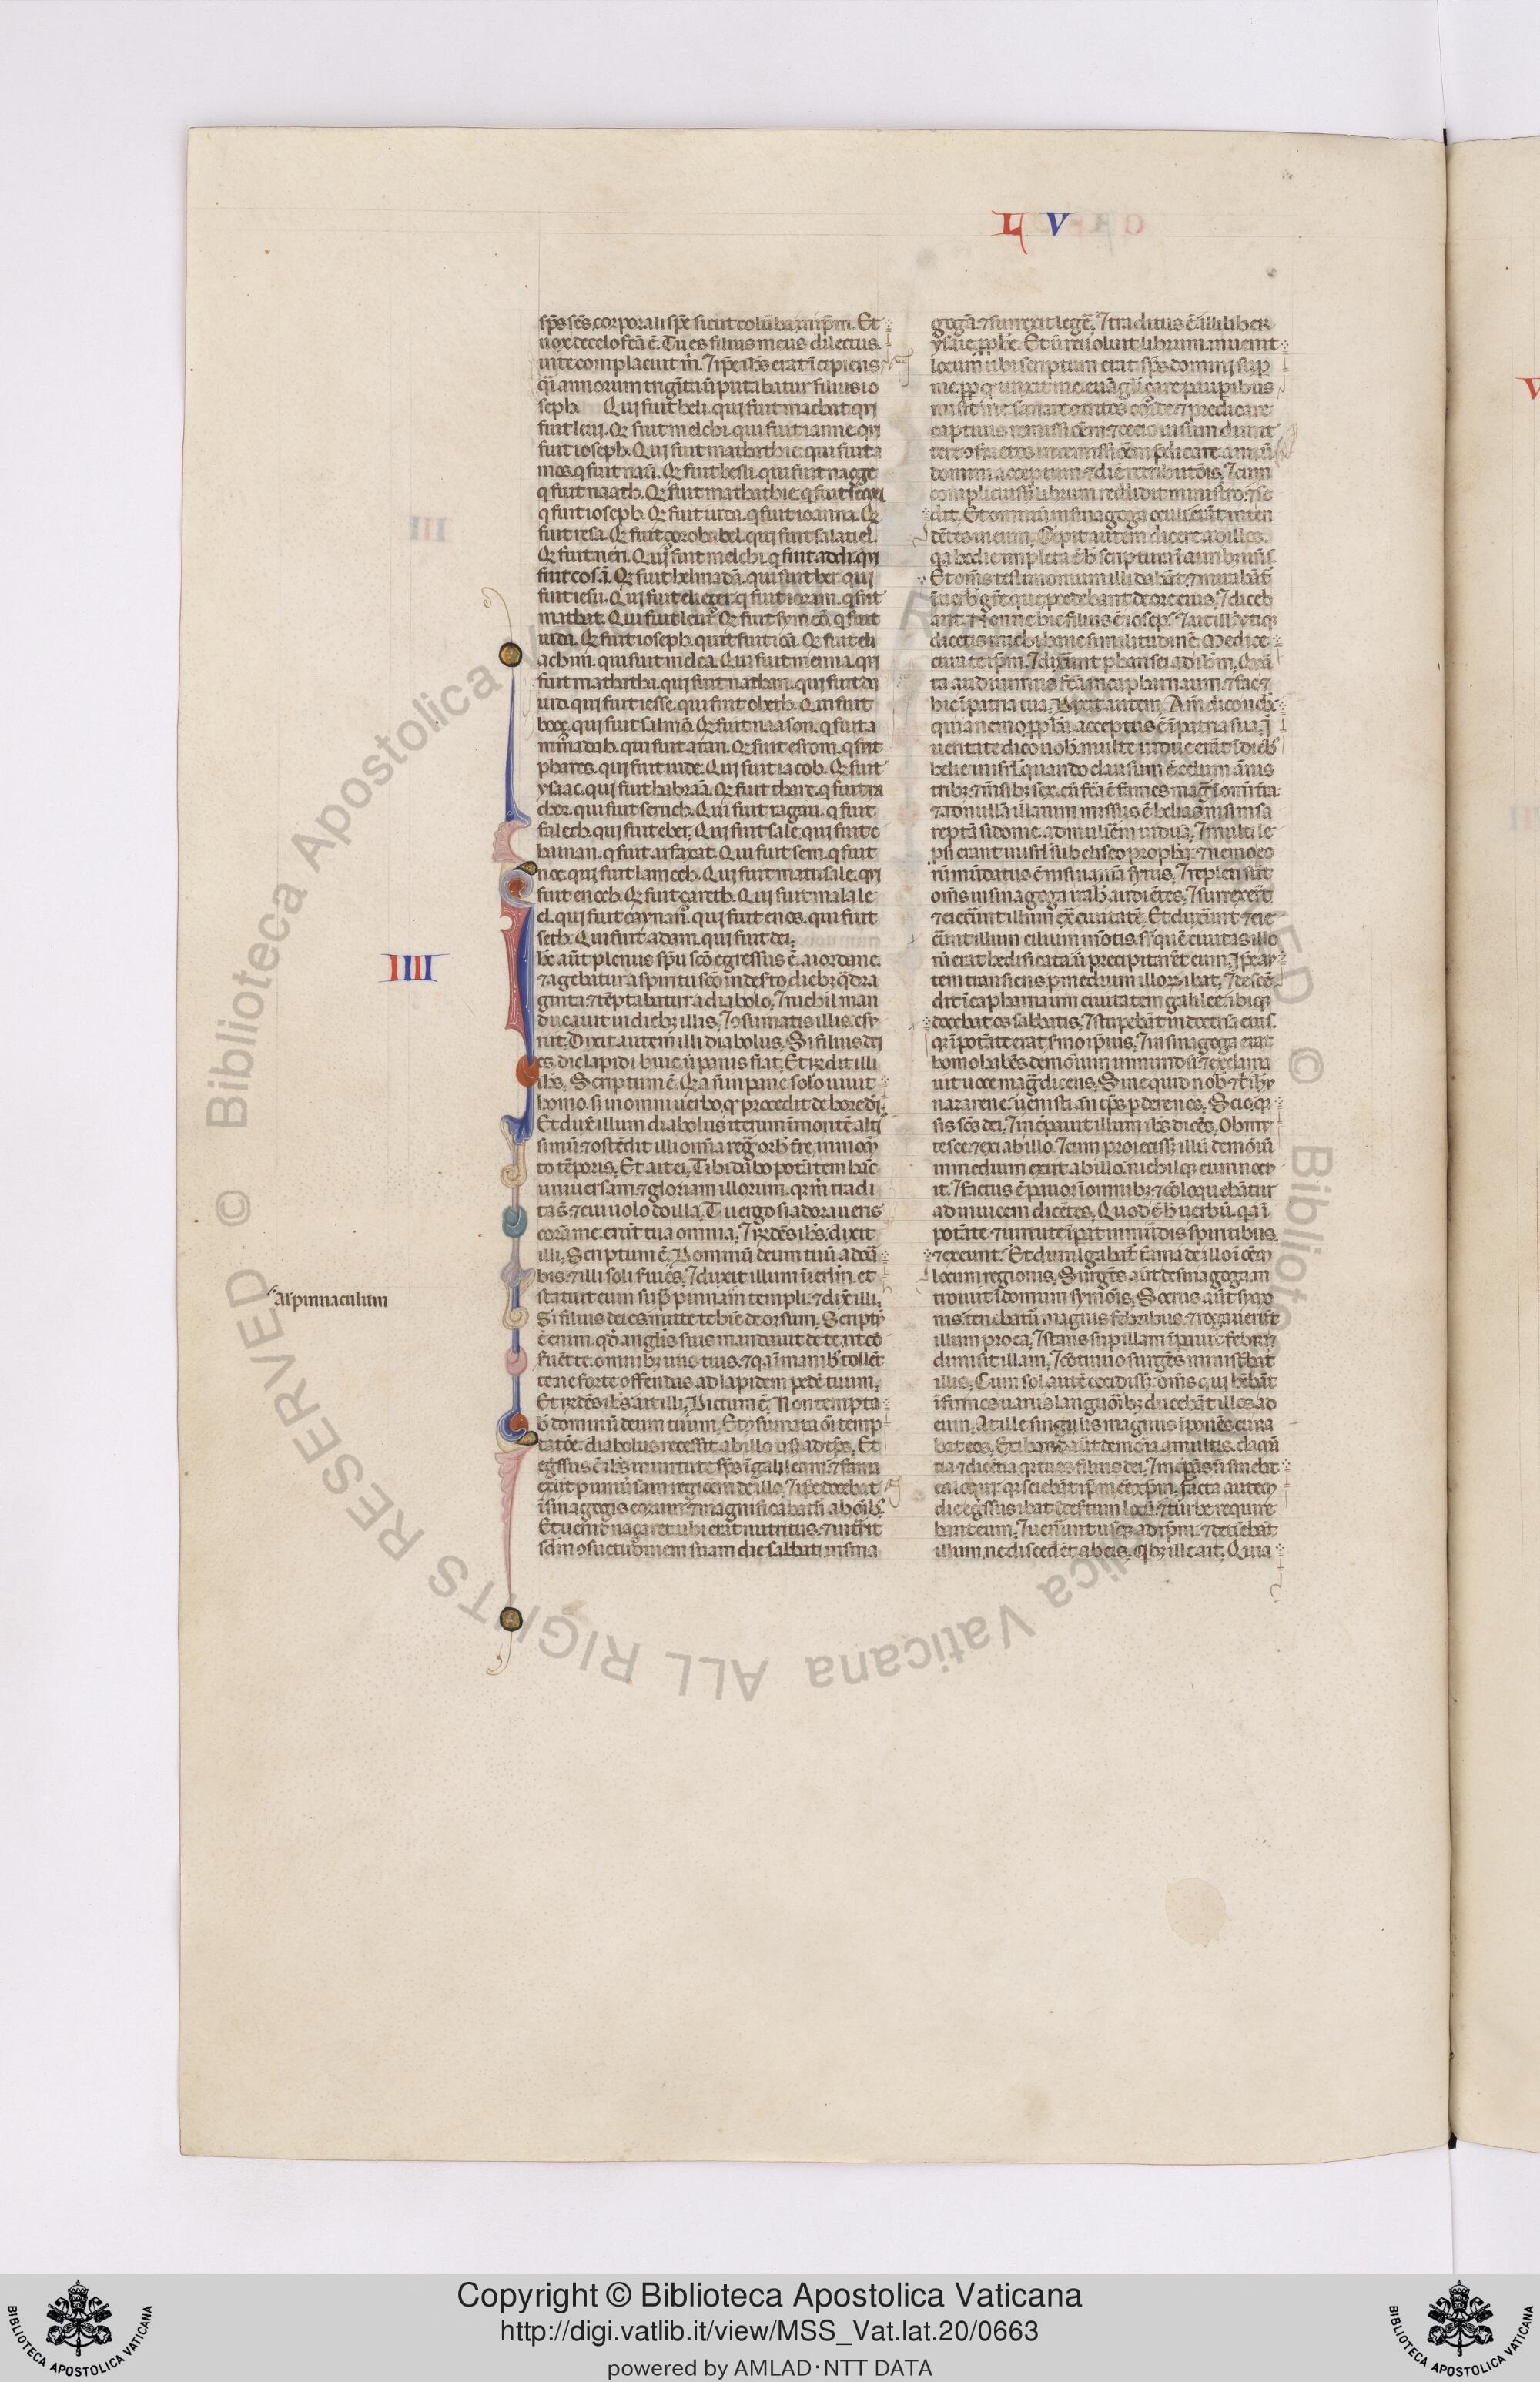 L V
sp̄s sc̄s corporali spē sicut colūba in ip̄m. Et
uox de celo fcā ē. Tu es filius meus dilectus.
in te complacuit m̄. ⁊ ip̄e ih̄s erat īcipiens
q̄i annorum trigīta ū putabatur filius io
seph. Qui fuit heli. qui fuit mathat. qui
fuit leui. Qi fuit melchi. qui fuit ianne. qui
fuit ioseph. Qui fuit mathathie. qui fuit a
mos. q fuit naū. Qi fuit hesli. qui fuit nagge
q fuit naath. Qi fuit mathathie. q fuit semei
q fuit ioseph. Qi fuit iuda. q fuit ioanna. Qi
fuit resa. Qi fuit çorobabel. qui fuit salatiel.
Qi fuit neri. Qui fuit melchi. q fuit addi. qui
fuit cosā. Qi fuit helmadā. qui fuit her. qui
fuit iesu. Qui fuit elieçer. q fuit ioram. q fuit
mathat. Qui fuit leui. Qi fuit symeō. q fuit
iuda. Qi fuit ioseph. qui fuit ionā. Qi fuit eli
achim. qui fuit melca. Qui fuit menna. qui
fuit mathatha. qui fuit nathan. qui fuit da
uid. qui fuit iesse. qui fuit obeth. Qui fuit
booç. qui fuit salmō. Qi fuit naason. q fuit a
minadab. qui fuit aran. Qi fuit esrom. q fuit
phares. qui fuit iude. Qui fuit iacob. Qi fuit
ysaac. qui fuit habraā. Qi fuit thare. q fuit na
chor. qui fuit seruch. Qui fuit ragau. q fuit
falech. qui fuit eber. Qui fuit sale. qui fuit c
hainan. q fuit arfaxat. Qui fuit sem. q fuit
noe. qui fuit lamech. Qui fuit matusale. qui
fuit enoch. Qi fuit çareth. Qui fuit malale
el. qui fuit caynan. qui fuit enos. qui fuit
seth. Qui fuit adam. qui fuit dei.
IIII
hc̄ aūt plenus spū scō egressus ē. a iordane.
⁊ agebatur a spiritu scō in deserto dieb; q̄dra
ginta. ⁊ tēptabatur a diabolo. ⁊ nichil man
ducauit in dieb; illis. ⁊ ꝯsumatis illis. esu
riit. Dixit autem illi diabolus. Si filius dei
es. dic lapidi huic ū panis fiat. Et rn̄dit illi
ih̄s. Scriptum ē. Qia n̄ in pane solo uiuit
homo. s; in omni uerbo. q procedit de hore dī.
Et duxit illum diabolus iterum ī montē alti
simū. ⁊ ostēdit illi omīa regna orbis tr̄e. in mom̄
to tēporis. Et ait ei. Tibi dabo potātem hāc
uniuersam. ⁊ gloriam illorum. qr m̄ tradi
ta s̄. ⁊ cui uolo do illa. Tu ergo si adoraueris
corā me. erūt tua omnia. ⁊ rn̄dēs ih̄s. dixit
illi. Scriptum ē. Dominū deum tuū adora
bis. ⁊ illi soli suies. ⁊ duxit illum ī ierlm̄. et
ał pinnaculum
statuit eum sup̄ pinnam templi. ⁊ dixit illi.
Si filius dei es. mitte te hic deorsum. Scriptū
ē enim. qō anglīs suis mandauit de te. ut cō
fuēt te. omnib; uiis tuis. ⁊ qa ī manib; tollēt
te ne forte offendas ad lapidem pedē tuum.
Et rn̄dēs ih̄s. ait illi. Dictum ē. Non tempta
b̄ dominū deum tuum. Et ꝯsumata oī temp
tatōe. diabolus recessit ab illo usq ad tp̄s. Et
egssus ē ih̄s in uirtute sp̄s ī galileam. ⁊ fama
exiit p uniūsam regiōem de illo. ⁊ ip̄e docebat
ī sinagogis eorum. ⁊ magnificabat̄ ab oīb;.
Et uenit naçaret. ubi erat nutritus. ⁊ intrāit
scd̄m ꝯsuetudīnem suam die sabbati in sina
gogā. ⁊ surrexit legē. ⁊ traditus ē illi liber
ysaie. pph̄e. Et ū reuoluit librum. inuenit
locum ubi scriptum erat. sp̄s domini sup̄
me. pp q unxit me. euāgliçare paupibus
misit me. sanare ꝯtritos corde. ⁊ predicare
captiuis remissiōem. ⁊ cecis uisum. dimit
tere ꝯfractos in remissiōem. p̄dicare annū
domini acceptum. ⁊ diē retributōis. ⁊ cum
complicuiss; librum reddidit ministro. ⁊ se
dit. Et omniū in sinagoga oculi erāt inten
dētes in eum. Cepit autem dicere ad illos.
qa hodie impleta ē h̄ scriptura ī aurib; uris.
Et om̄s testimonium illi dabāt. ⁊ mirabāt̄
ī uerbis gr̄e. que pcedebant de ore eius. ⁊ diceb
ant. Nonne hic filius ē ioseph. ⁊ ait ill'. Utiq
dicetis michi hanc similitudinē. Medice
cura teip̄m. ⁊ dixerunt pharisei ad ih̄m. Quā
ta audiuimus fcā in capharnaum. ⁊ fac ⁊
hic ī patria tua. Dixit autem. Am̄ dico uob̄
quia nemo pph̄a acceptus ē ī patria sua. ī
ueritate dico uob̄. multe uidue erāt ī dieb;
helie in isrl̄. quando clausum ē celum ānis
trib;. ⁊ m̄sib; sex. cū fcā ē fames magna ī omī tr̄a.
⁊ ad nullā illarum missus ē helias. nisi in sa
reptā sidonie. ad mulierem uiduā. ⁊ multi le
psi erant in isrl̄ sub eliseo propheta. ⁊ nemo eo
rū mūdatus ē nisi naamā syrus. ⁊ repleti sūt
om̄s in sinagoga ira h̄ audiētes. ⁊ surrexert
⁊ eiecerūt illum ex̄ ciuitatē. Et duxerūt
illum usq ad supcilium mōtis. sr̄ quē ciuitas illo
rū erat hedificata. ū precipitarēt eum. ⁊ ip̄e aū
tem transiens p medium illoꝝ. ibat. ⁊ descē
dit ī capharnaum ciuitatem galilee. ibiq
docebat eos sabbatis. ⁊ stupebāt in doctrīa eius.
qr ī potāte erat smo ip̄ius. ⁊ in sinagoga erat
homo habēs demōium inmundū. ⁊ exclama
uit uoce magna dicens. Sine quid nob̄ ⁊ t̄ ihū
nazarene. uenisti ān tp̄s p derenos. Scio q
sis sc̄s dei. ⁊ incpauit illum ih̄s dicēs. Obmu
tesce. ⁊ exi ab illo. ⁊ cum proiecisset illū demōiū
in medium. exiit ab illo. nichilq eum nocu
it. ⁊ factus ē pauor ī omnib;. ⁊ cōloquebātur
ad inuicem dicētes. Quod ē h̄ uerbū. qa ī
potāte ⁊ uirtute īpat inmūdis spiritibus
⁊ exeunt. Et diuulgabat̄ fama de illo ī oēm
locum regionis. Surgēs aūt de sinagoga in
troiuit ī domum symōis. Socrus aūt symo
nis. tenebat̄ magnis febribus. ⁊ rogauerūt
illum pro ea. ⁊ stans sup illam īpauit febri. ⁊
dimisit illam. ⁊ cōtinuo surgēs ministabat
illis. Cum sol autē occidiss;. om̄s qui hēbāt
īfirmos uariis languōib; ducebāt illos ad
eum. At ille singulis magnus īponēs cura
bat eos. Exibant aūt demōia a multis. clamā
tia ⁊ dicētia. qr tu es filius dei. ⁊ incpās n̄ sinebat
ea loqui. qr sciebāt ip̄m eē xp̄m. facta autem
die egssus ibat ī desertum locū. ⁊ turbe require
bant eum. ⁊ uenerunt usq ad ip̄m. ⁊ detiebāt
illum. ne discedēt ab eis. qb; ille ait. Quia
© Biblioteca Apostolica Vaticana ALL RIGHTS RESERVED © Biblioteca Apostolica Vaticana ALL RIGHTS RESERVED
Copyright © Biblioteca Apostolica Vaticana
http://digi.vatlib.it/view/MSS_Vat.lat.20/0663
powered by AMLAD・NTT DATA
BIBLIOTECA APOSTOLICA VATICANA
BIBLIOTECA APOSTOLICA VATICANA